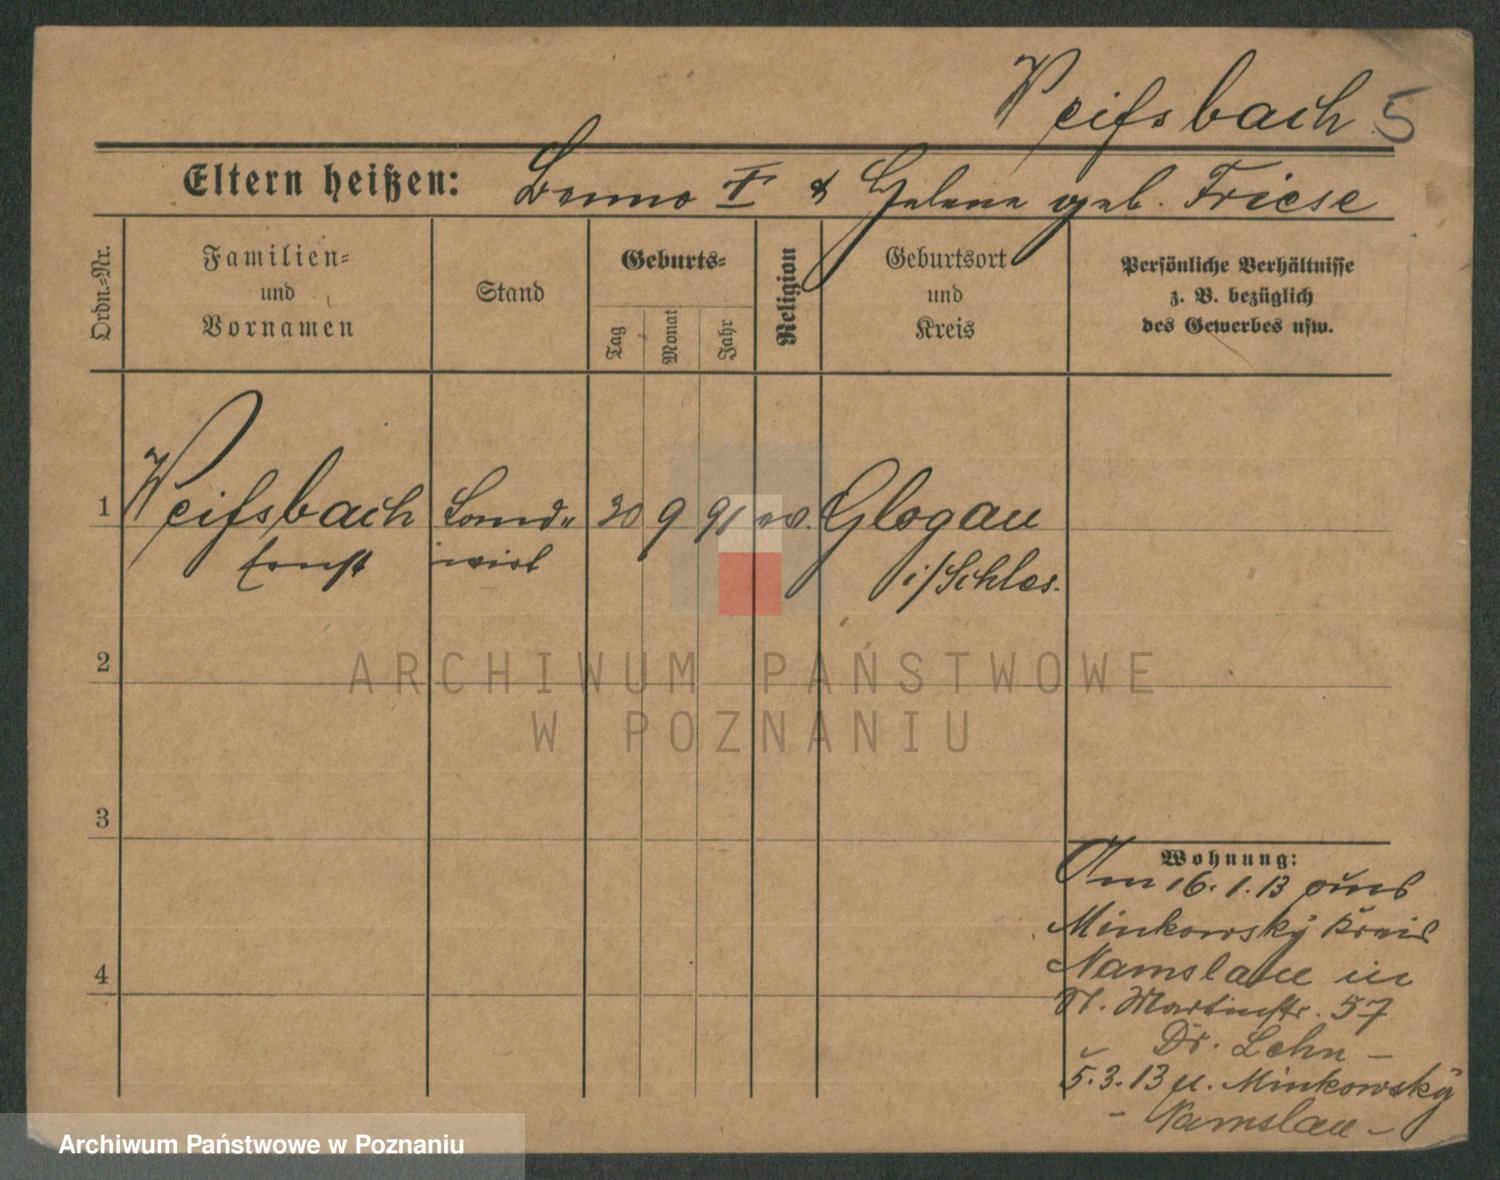 Weißbach 5
Eltern heißen: Benno † & Helene geb. Friese
Ordn.-Nr.
Familien- und Vornamen
Stand
Geburts-
Tag
Monat
Jahr
Religion
Geburtsort und Kreis
Persönliche Verhältnisse
z. B. bezüglich
des Gewerbes usw.
1 Weißbach Land- 20 9 91 ev. Glogau
Ernst wirt i/Schles.
2
3
4
Wohnung:
Am 16.1.13 aus
Minkowsky Kreis
Namslau in
St. Martinstr. 57
Dr. Lehn –
5.3.13 n. Minkowsky
– Namslau –
ARCHIWUM PAŃSTWOWE
W POZNANIU
Archiwum Państwowe w Poznaniu